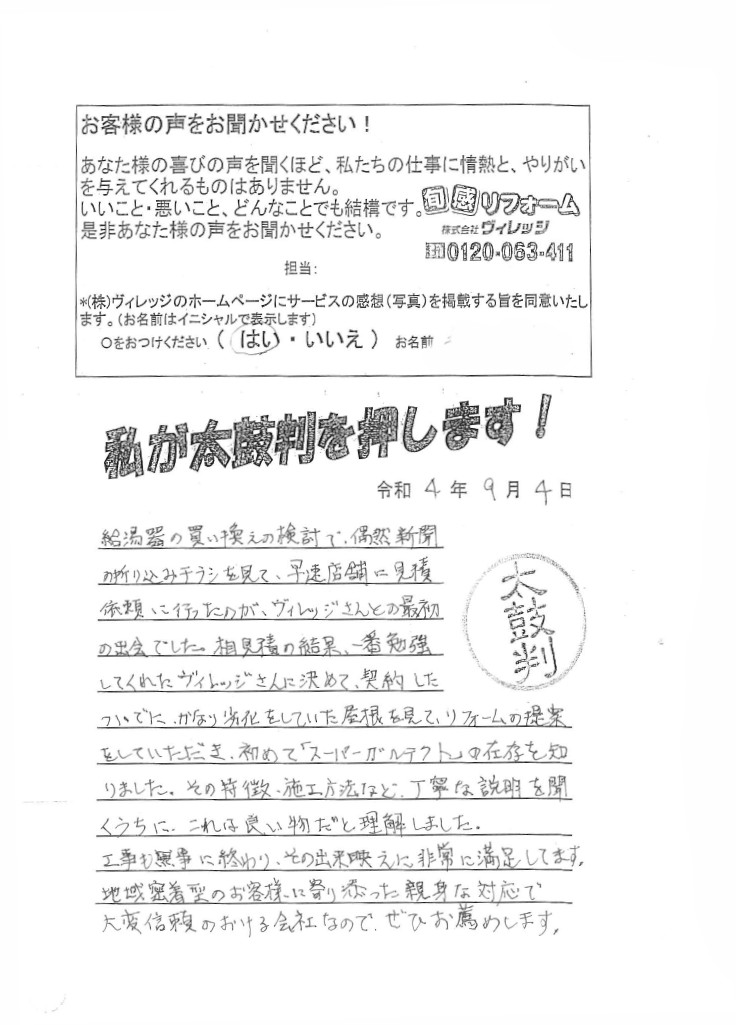 お客様の声をお聞かせください！
あなた様の喜びの声を聞くほど、私たちの仕事に情熱と、やりがい
を与えてくれるものはありません。
いいこと・悪いこと、どんなことでも結構です。
是非あなた様の声をお聞かせください。
旬感リフォーム
株式会社ヴィレッジ
0120-063-411
担当：
*(株)ヴィレッジのホームページにサービスの感想(写真)を掲載する旨を同意いたし
ます。(お名前はイニシャルで表示します)
○をおつけください（ はい・いいえ ） お名前
私が太鼓判を押します！
令和 4 年 9 月 4 日
給湯器の買い換えの検討で、偶然新聞
の折り込みチラシを見て、早速店舗に見積
依頼に行ったのが、ヴィレッジさんとの最初
の出会でした。相見積の結果、一番勉強
してくれたヴィレッジさんに決めて、契約した
ついでに、かなり劣化をしていた屋根を見て、リフォームの提案
をしていただき、初めて「スーパーガルテクト」の存在を知
りました。その特徴、施工方法など、丁寧な説明を聞
くうちに、これは良い物だと理解しました。
工事も無事に終わり、その出来映えに非常に満足してます。
地域密着型のお客様に寄り添った親身な対応で
大変信頼のおける会社なので、ぜひお薦めします。
太鼓判